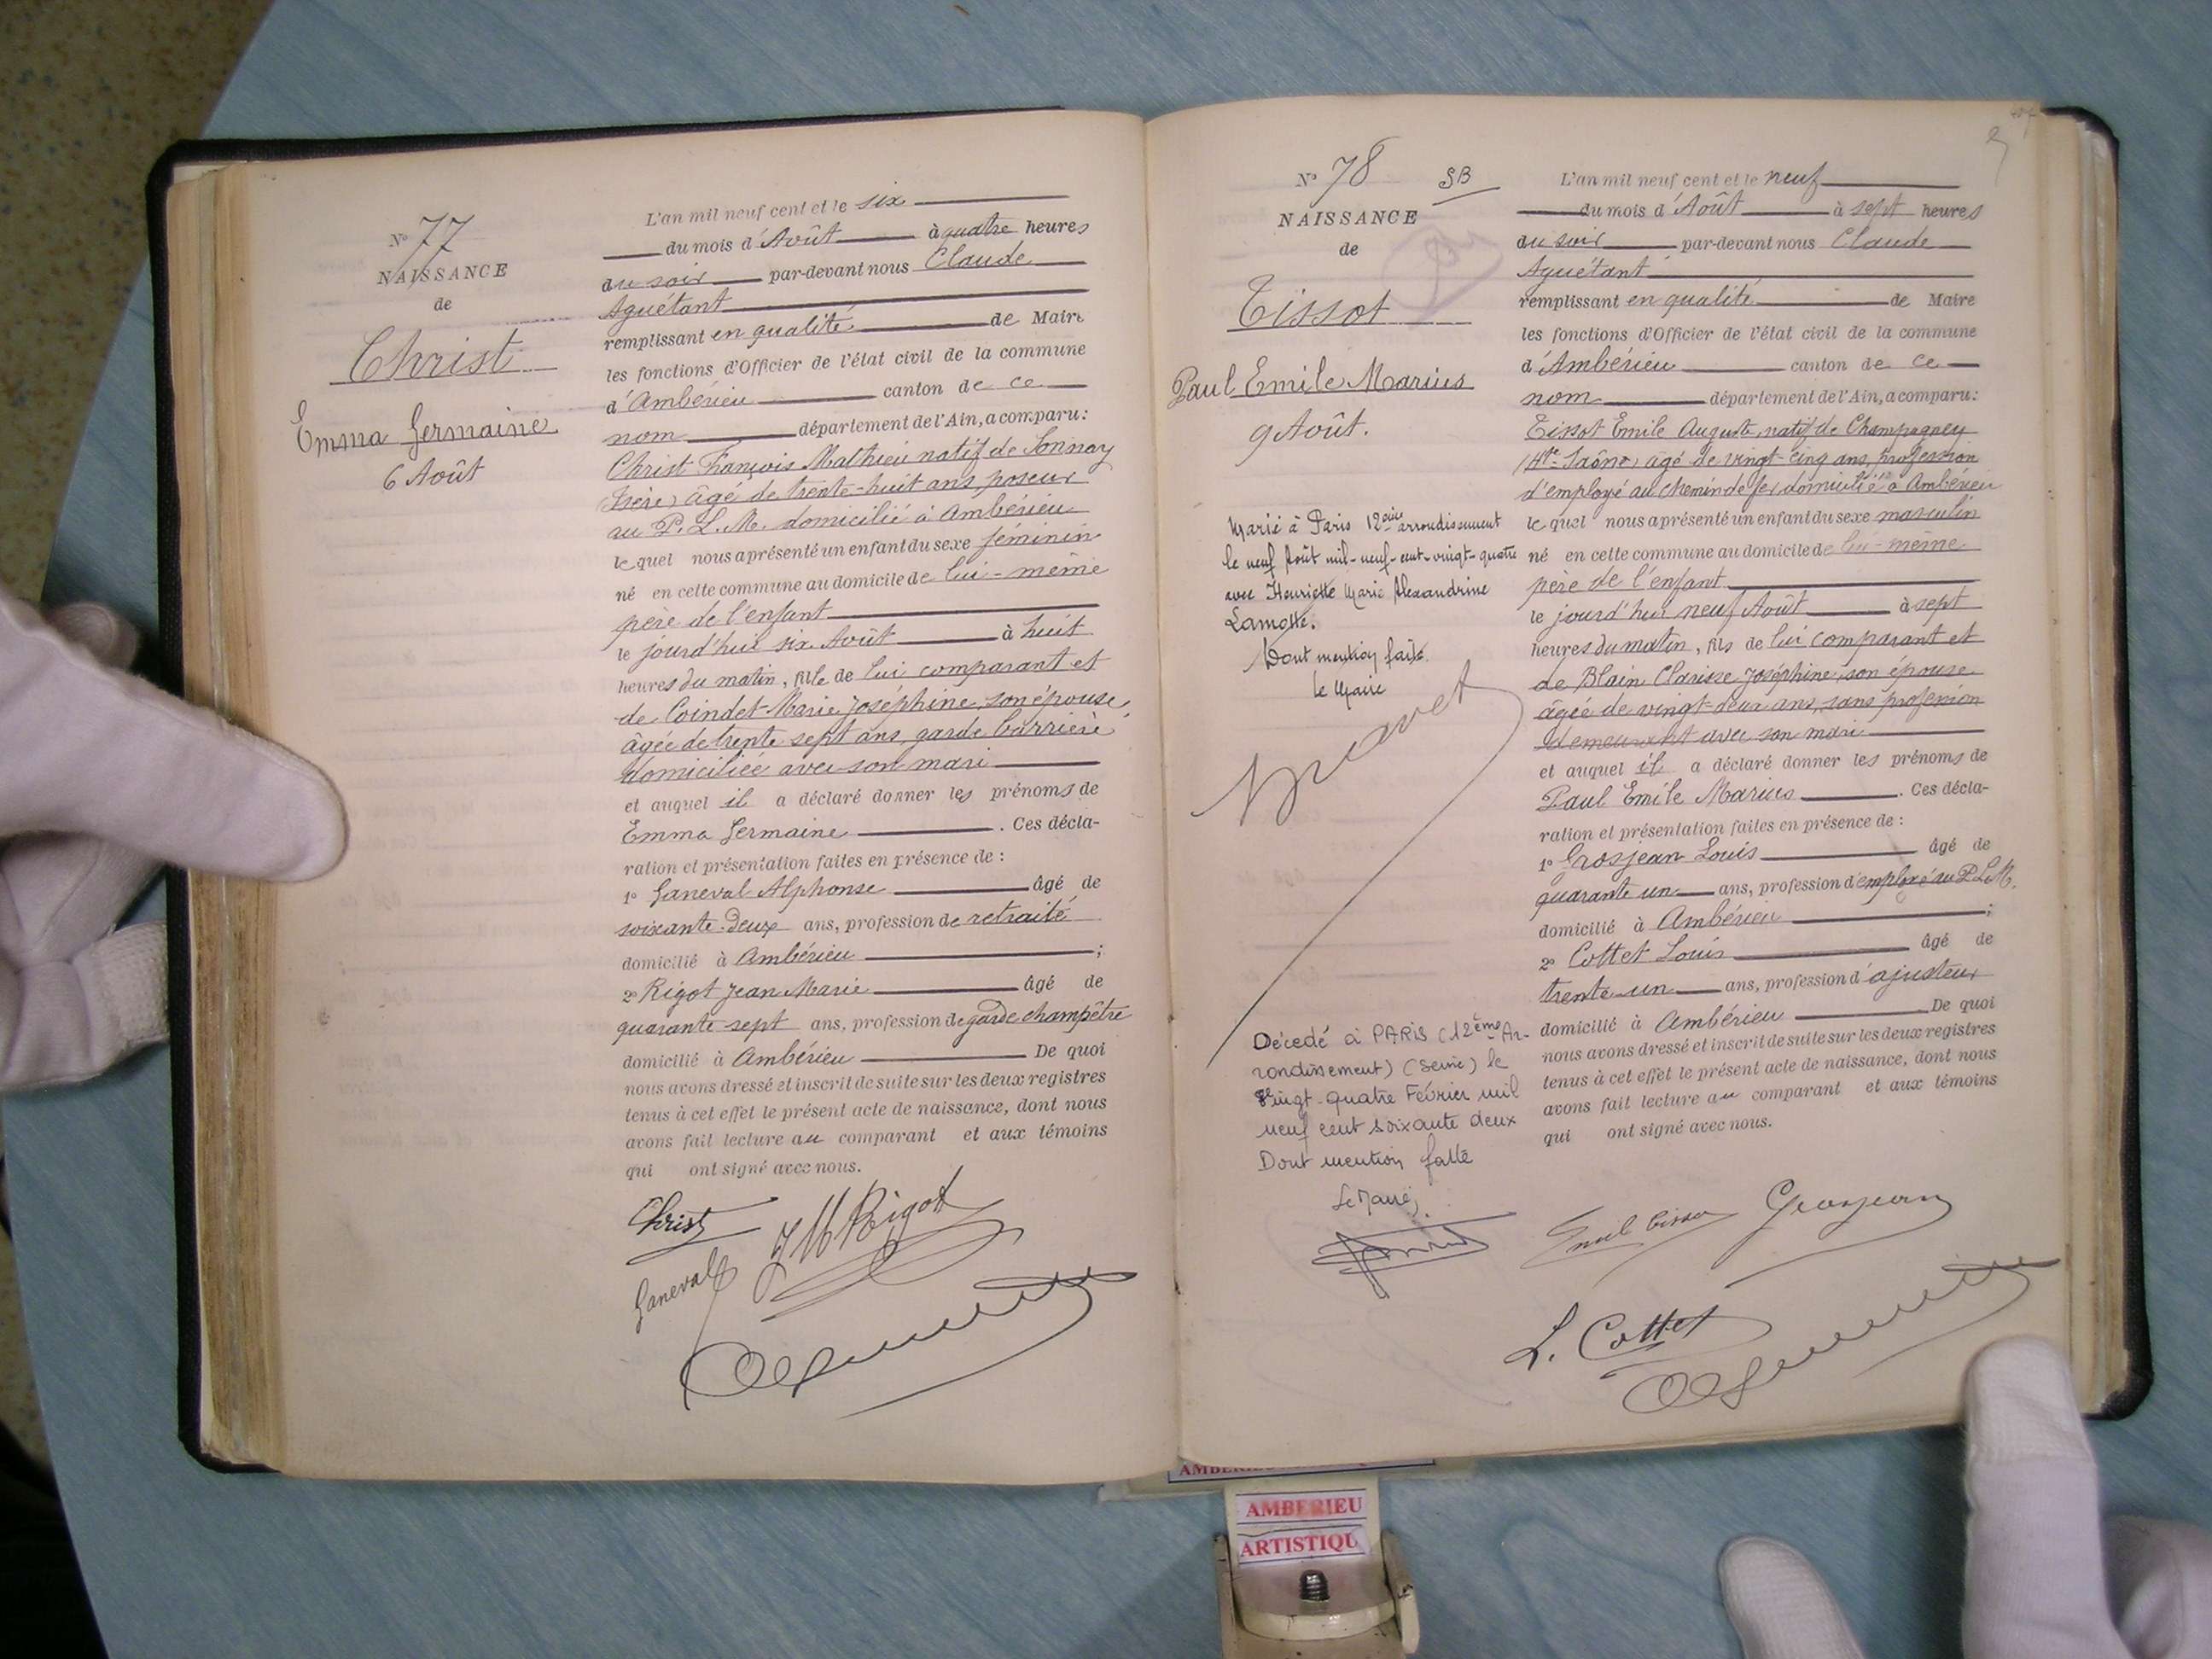 N° 77
NAISSANCE
de
Christ
Emma Germaine
6 Août
L'an mil neuf cent et le six
du mois d'Août à quatre heures
du soir par-devant nous Claude
Aguétant
remplissant en qualité de Maire
les fonctions d'Officier de l'état civil de la commune
d'Ambérieu canton de ce
nom département de l'Ain, a comparu:
Christ François Mathieu natif de Sonnay
(Isère) âgé de trente-huit ans, poseur
au P. L. M. domicilié à Ambérieu
le quel nous a présenté un enfant du sexe féminin
né en cette commune au domicile de lui-même
père de l'enfant
le jourd'hui six Août à huit
heures du matin, fille de lui comparant et
de Coindet Marie Joséphine, son épouse,
âgée de trente sept ans, garde barrière
domiciliée avec son mari
et auquel il a déclaré donner les prénoms de
Emma Germaine. Ces décla-
ration et présentation faites en présence de :
1° Ganeval Alphonse âgé de
soixante-deux ans, profession de retraité
domicilié à Ambérieu ;
2° Rigot Jean Marie âgé de
quarante sept ans, profession de garde champêtre
domicilié à Ambérieu De quoi
nous avons dressé et inscrit de suite sur les deux registres
tenus à cet effet le présent acte de naissance, dont nous
avons fait lecture au comparant et aux témoins
qui ont signé avec nous.
Christ
J M Rigot
Ganeval
N° 78 SB
NAISSANCE
de
Tissot
Paul Emile Marius
9 Août.
Marié à Paris 12ème arrondissement
le neuf Août mil-neuf-cent-vingt-quatre
avec Henriette Marie Alexandrine
Lamotte.
Dont mention faite.
Le Maire
Décédé à PARIS (12ème Ar-
rondissement) (Seine) le
vingt-quatre Février mil
neuf cent soixante deux
Dont mention faite
Le Maire,
L'an mil neuf cent et le neuf
du mois d'Août à sept heures
du soir par-devant nous Claude
Aguétant
remplissant en qualité de Maire
les fonctions d'Officier de l'état civil de la commune
d'Ambérieu canton de ce
nom département de l'Ain, a comparu:
Tissot Emile Auguste, natif de Champagney
(Hte-Saône) âgé de vingt-cinq ans, profession
d'employé au chemin de fer, domicilié à Ambérieu
le quel nous a présenté un enfant du sexe masculin
né en cette commune au domicile de lui-même
père de l'enfant
le jourd'hui neuf Août à sept
heures du matin, fils de lui comparant et
de Blain Clarisse Joséphine, son épouse
âgée de vingt-deux ans, sans profession
demeurant avec son mari
et auquel il a déclaré donner les prénoms de
Paul Emile Marius. Ces décla-
ration et présentation faites en présence de :
1° Grosjean Louis âgé de
quarante un ans, profession d'employé au P.L.M.
domicilié à Ambérieu ;
2° Cottet Louis âgé de
trente-un ans, profession d'ajusteur
domicilié à Ambérieu De quoi
nous avons dressé et inscrit de suite sur les deux registres
tenus à cet effet le présent acte de naissance, dont nous
avons fait lecture au comparant et aux témoins
qui ont signé avec nous.
Emile Tissot Grosjean
L. Cottet
AMBERIEU
ARTISTIQU